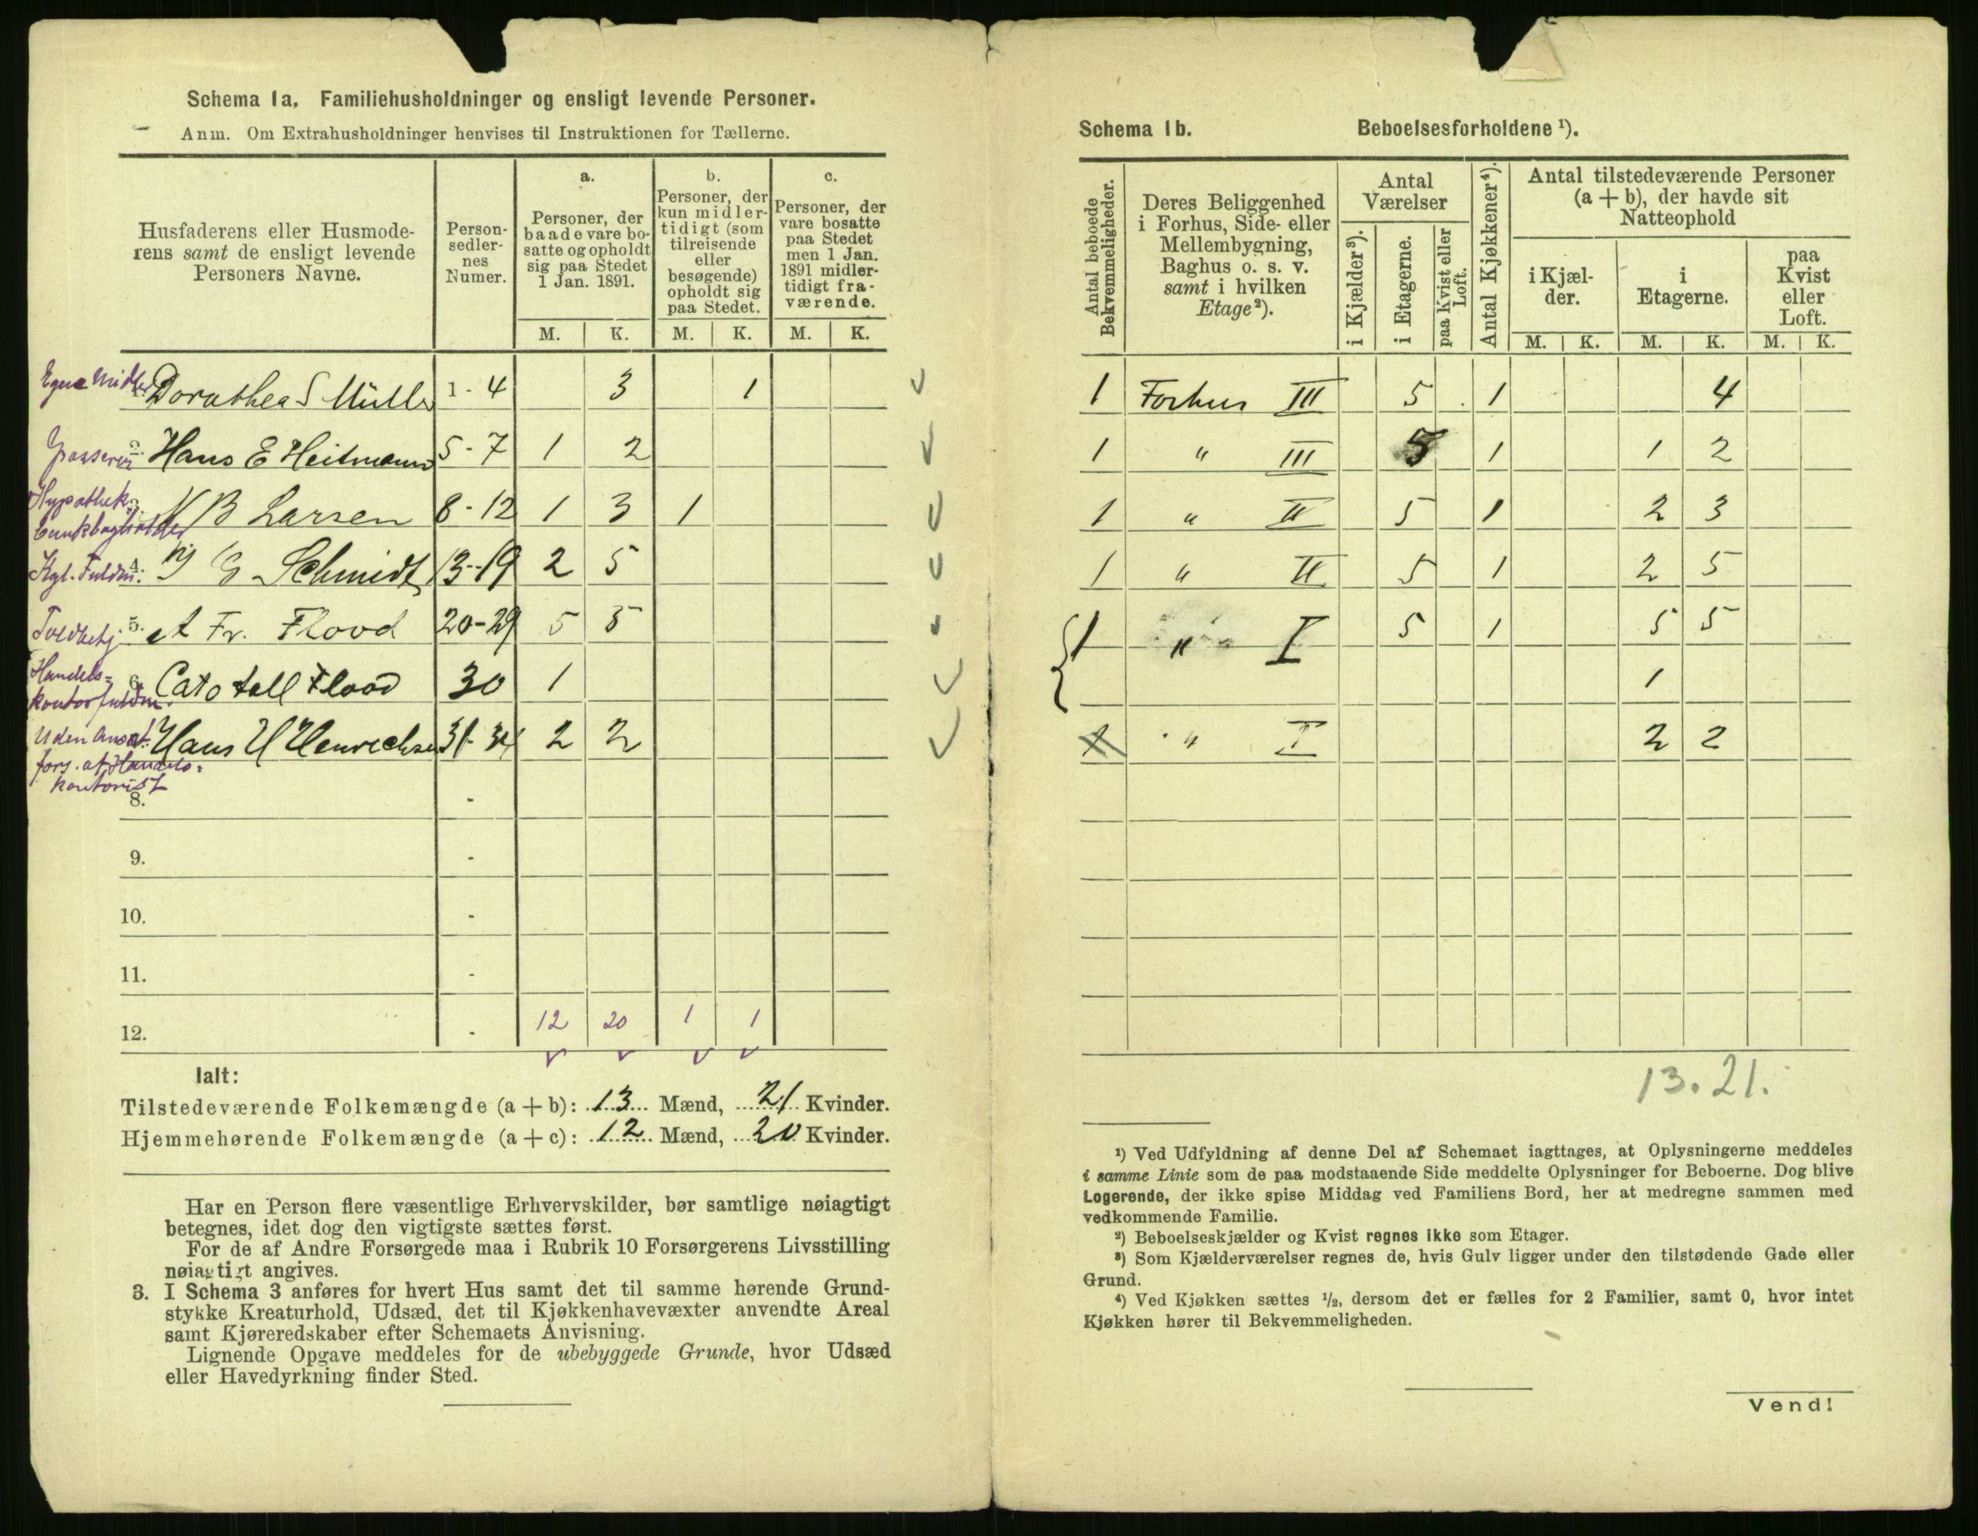 Schema 1a. Familiehusholdninger og ensligt levende Personer.
Anm. Om Extrahusholdninger henvises til Instruktionen for Tællerne.
Husfaderens eller Husmoderens samt de ensligt levende Personers Navne.
Personsedlernes Numer.
a. Personer, der baade vare bosatte og opholdt sig paa Stedet 1 Jan. 1891.
b. Personer, der kun midlertidigt (som tilreisende eller besøgende) opholdt sig paa Stedet.
c. Personer, der vare bosatte paa Stedet men 1 Jan. 1891 midlertidigt fraværende.
M. K. M. K. M. K.
Egne Midler Dorathea S Müller 1-4 3 1
2. Hans E Heitmann 5-7 1 2
Hypothekbankbogholder 3. B Larsen 8-12 1 3 1
Kgl. Fuldm: 4. G Schmidt 13-19 2 5
Toldbetj 5. Fr. Flood 20-29 5 5
Handelskontorfuldm. 6. Cato Flood 30 1
Uden Ansat. Hans H Henrichsen 31-34 2 2
fors. af Handels=
kontorist
8. -
9. -
10. -
11. -
12. - 12 20 1 1
Ialt:
Tilstedeværende Folkemængde (a + b): 13 Mænd, 21 Kvinder.
Hjemmehørende Folkemængde (a + c): 12 Mænd, 20 Kvinder.
Har en Person flere væsentlige Erhvervskilder, bør samtlige nøiagtigt
betegnes, idet dog den vigtigste sættes først.
For de af Andre Forsørgede maa i Rubrik 10 Forsørgerens Livsstilling
nøiagtigt angives.
3. I Schema 3 anføres for hvert Hus samt det til samme hørende Grund-
stykke Kreaturhold, Udsæd, det til Kjøkkenhavevæxter anvendte Areal
samt Kjøreredskaber efter Schemaets Anvisning.
Lignende Opgave meddeles for de ubebyggede Grunde, hvor Udsæd
eller Havedyrkning finder Sted.
Schema 1b. Beboelsesforholdene ¹).
Antal beboede Bekvemmeligheder.
Deres Beliggenhed i Forhus, Side- eller Mellembygning, Baghus o. s. v. samt i hvilken Etage ²).
Antal Værelser
i Kjælder ³). i Etagerne. paa Kvist eller Loft.
Antal Kjøkkener ⁴).
Antal tilstedeværende Personer (a + b), der havde sit Natteophold
i Kjælder. i Etagerne. paa Kvist eller Loft.
M. K. M. K. M. K.
1 Forhus III 5 1 4
1 " III 5 1 1 2
1 " II 5 1 2 3
1 " II 5 1 2 5
1 " I 5 1 5 5
1
1 " I 2 2
13. 21.
¹) Ved Udfyldning af denne Del af Schemaet iagttages, at Oplysningerne meddeles
i samme Linie som de paa modstaaende Side meddelte Oplysninger for Beboerne. Dog blive
Logerende, der ikke spise Middag ved Familiens Bord, her at medregne sammen med
vedkommende Familie.
²) Beboelseskjælder og Kvist regnes ikke som Etager.
³) Som Kjælderværelser regnes de, hvis Gulv ligger under den tilstødende Gade eller
Grund.
⁴) Ved Kjøkken sættes ½, dersom det er fælles for 2 Familier, samt 0, hvor intet
Kjøkken hører til Bekvemmeligheden.
Vend!